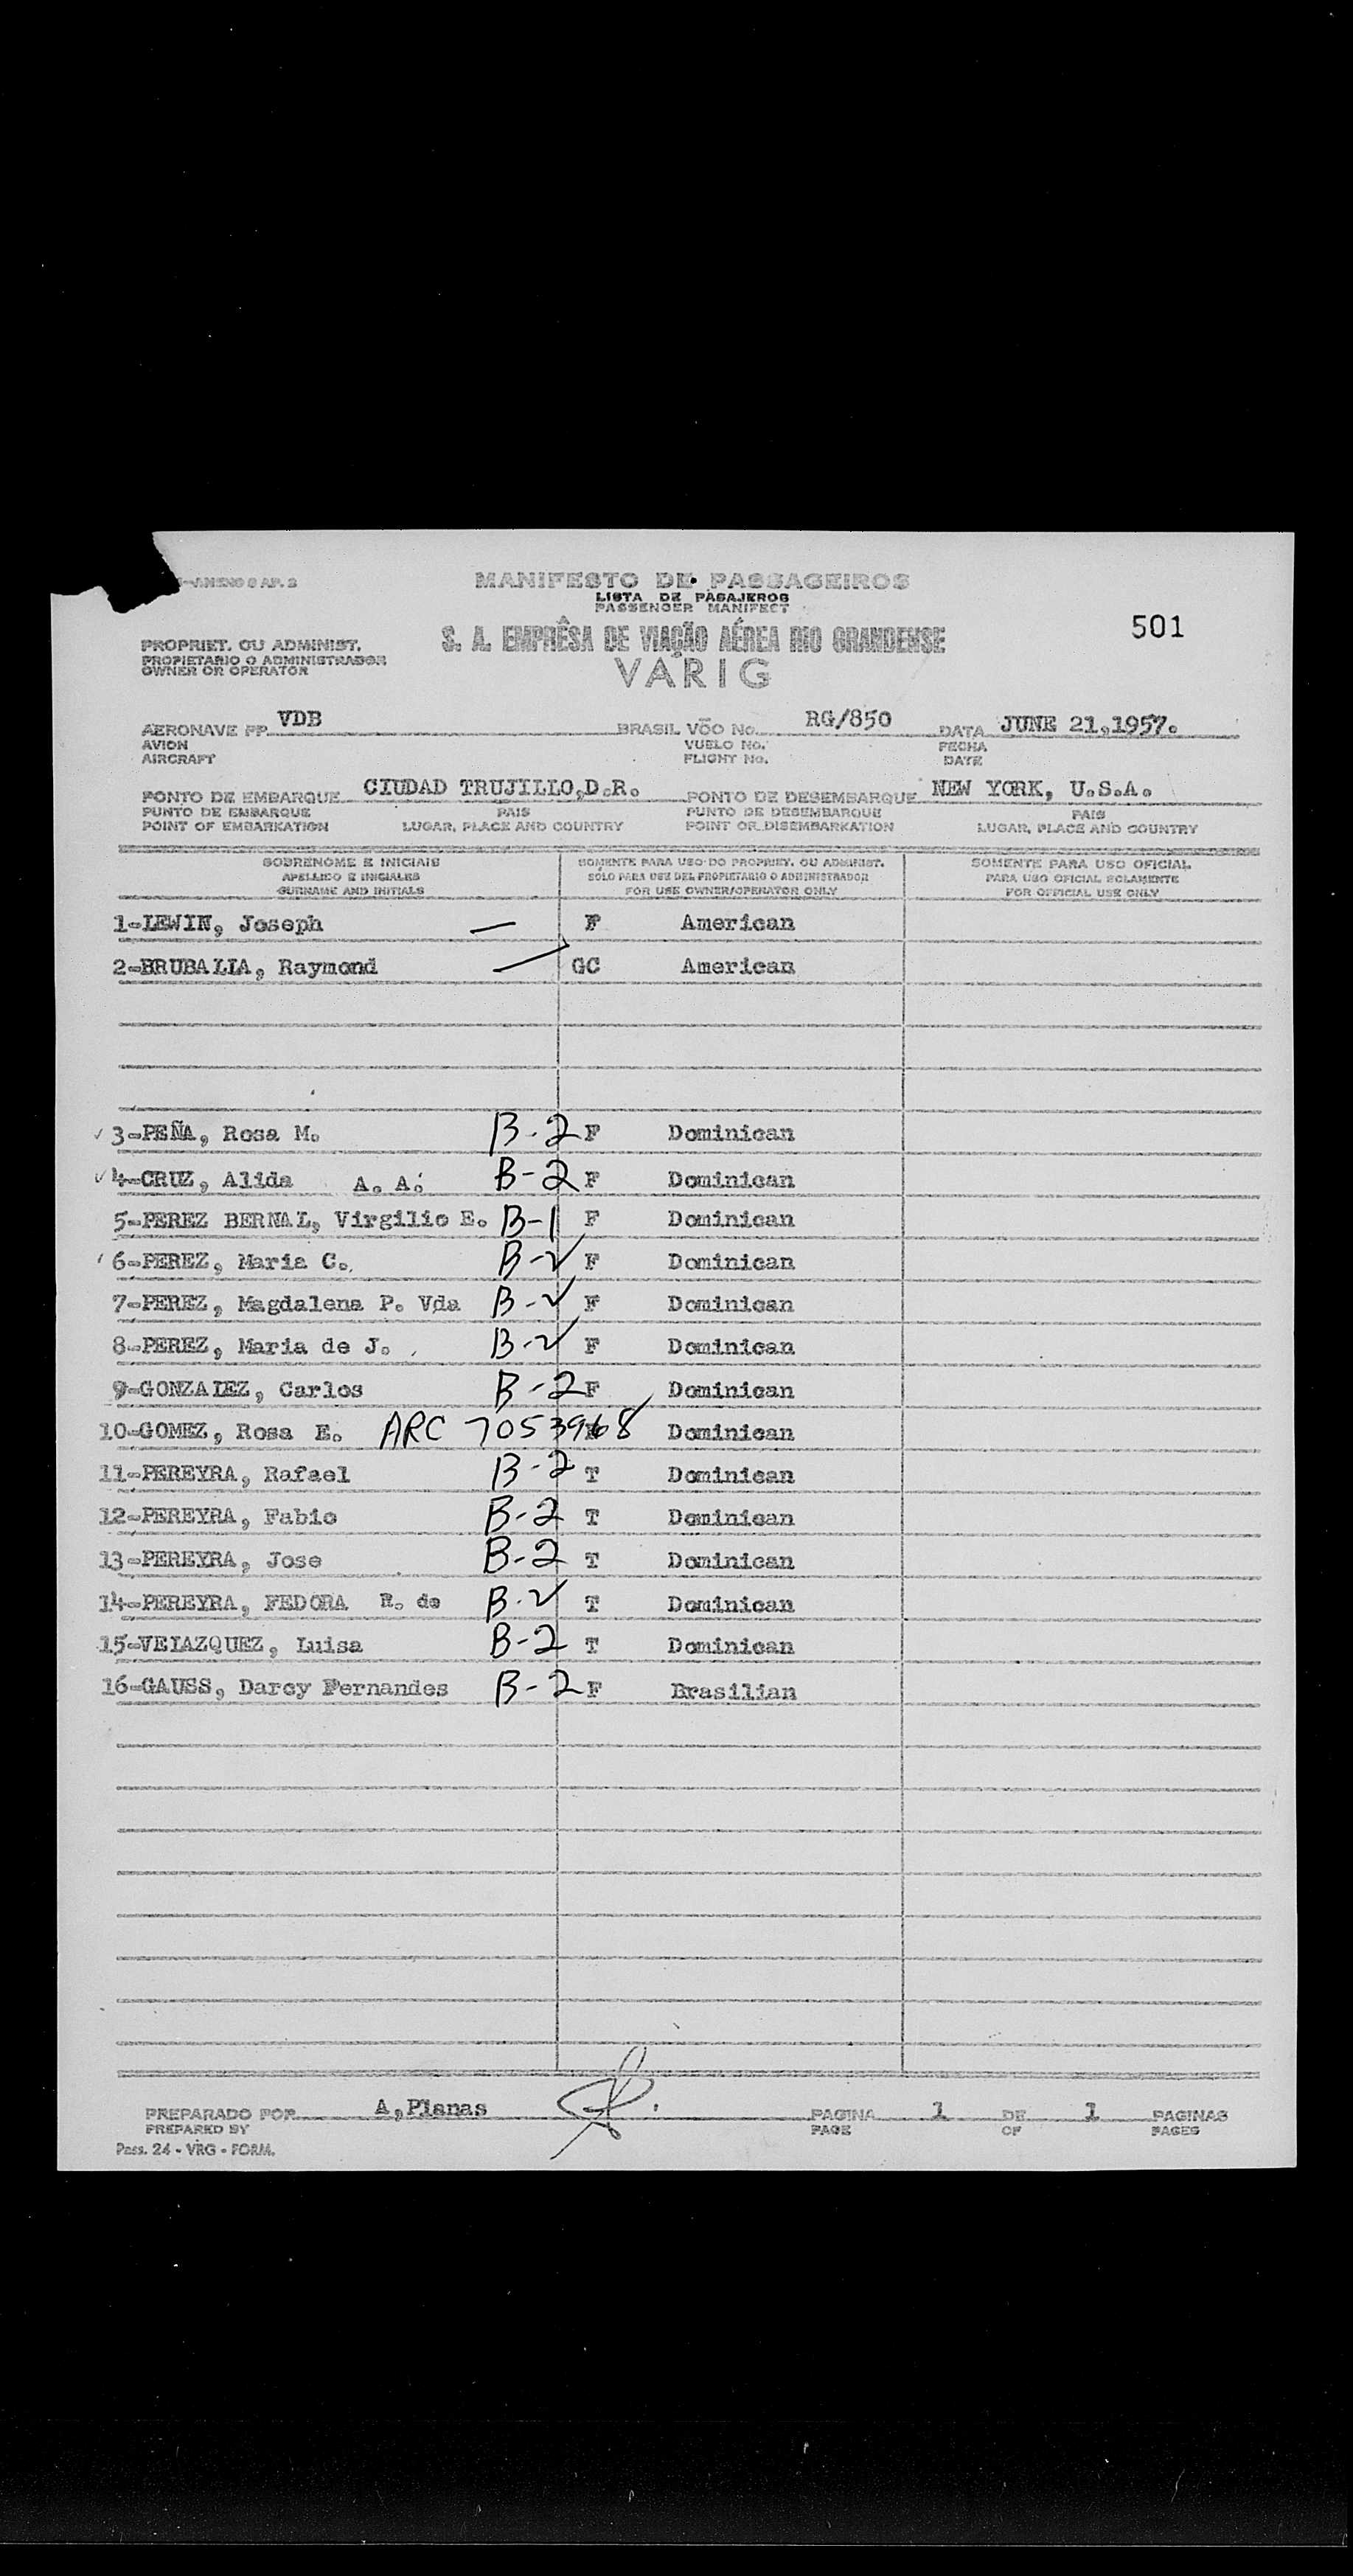 -ANEXO 9 AP. 2
MANIFESTO DE PASSAGEIROS
LISTA DE PASAJEROS
PASSENGER MANIFEST
501
PROPRIET. OU ADMINIST.
PROPIETARIO O ADMINISTRADOR
OWNER OR OPERATOR
S. A. EMPRÊSA DE VIAÇÃO AÉREA RIO GRANDENSE
VARIG
AERONAVE PP VDB BRASIL VÕO No. RG/850 DATA JUNE 21,1957.
AVION VUELO No. FECHA
AIRCRAFT FLIGHT No. DATE
PONTO DE EMBARQUE CIUDAD TRUJILLO,D.R. PONTO DE DESEMBARQUE NEW YORK, U.S.A.
PUNTO DE EMBARQUE PAIS PUNTO DE DESEMBARQUE PAIS
POINT OF EMBARKATION LUGAR, PLACE AND COUNTRY POINT OR DISEMBARKATION LUGAR, PLACE AND COUNTRY
SOBRENOME E INICIAIS SOMENTE PARA USO DO PROPRIET. OU ADMINIST. SOMENTE PARA USO OFICIAL
APELLIDO E INICIALES SÓLO PARA USE DEL PROPIETARIO O ADMINISTRADOR PARA USO OFICIAL SOLAMENTE
SURNAME AND INITIALS FOR USE OWNER/OPERATOR ONLY FOR OFFICIAL USE ONLY
1-LEWIN, Joseph — F American
2-BRUBALLA, Raymond — GC American
✓ 3-PEÑA, Rosa M. B-2 F Dominican
✓ 4-CRUZ, Alida A. A. B-2 F Dominican
5-PEREZ BERNAL, Virgilio E. B-1 F Dominican
✓ 6-PEREZ, Maria C. B-2 F Dominican
7-PEREZ, Magdalena P. Vda B-2 F Dominican
8-PEREZ, Maria de J. B-2 F Dominican
9-GONZALEZ, Carlos B-2 F Dominican
10-GOMEZ, Rosa E. ARC 7053968 Dominican
11-PEREYRA, Rafael B-2 T Dominican
12-PEREYRA, Fabio B-2 T Dominican
13-PEREYRA, Jose B-2 T Dominican
14-PEREYRA, FEDORA R. de B-2 T Dominican
15-VELAZQUEZ, Luisa B-2 T Dominican
16-GAUSS, Darcy Fernandes B-2 F Brasilian
PREPARADO POR A,Planas PAGINA 1 DE 1 PAGINAS
PREPARED BY PAGE OF PAGES
Pass. 24 - VRG - FORM.